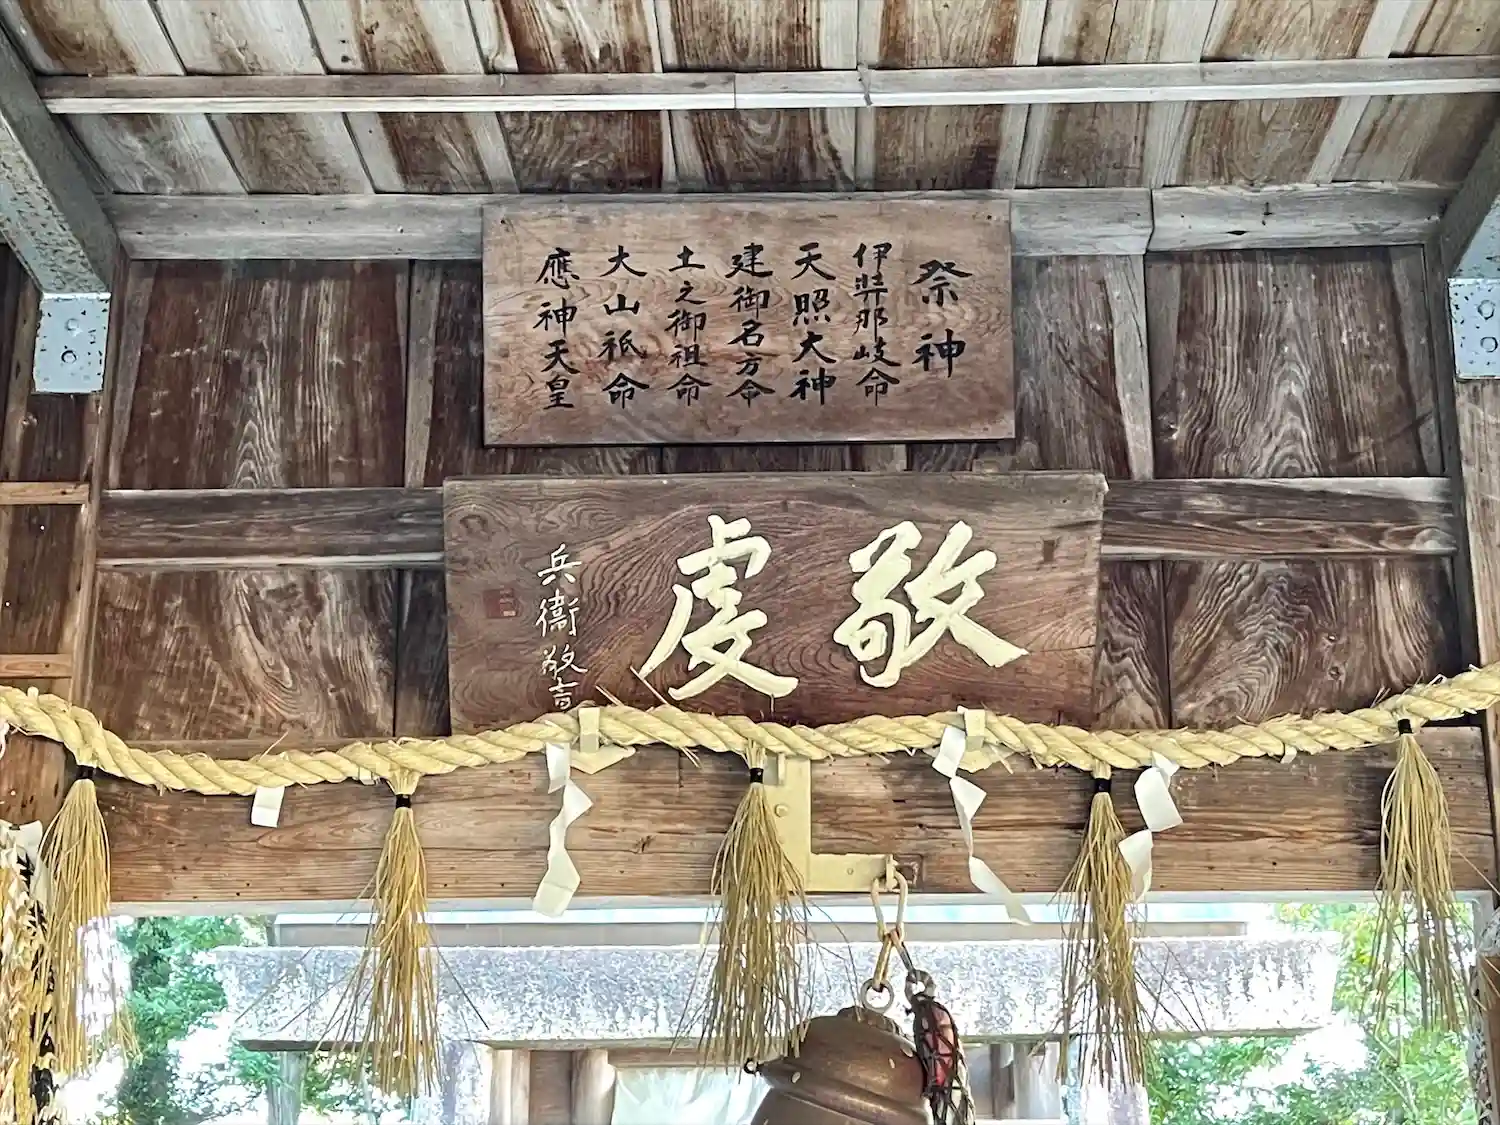 祭神
伊弉那岐命
天照大神
建御名方命
土之御祖命
大山祇命
應神天皇
敬虔
兵衞敬書